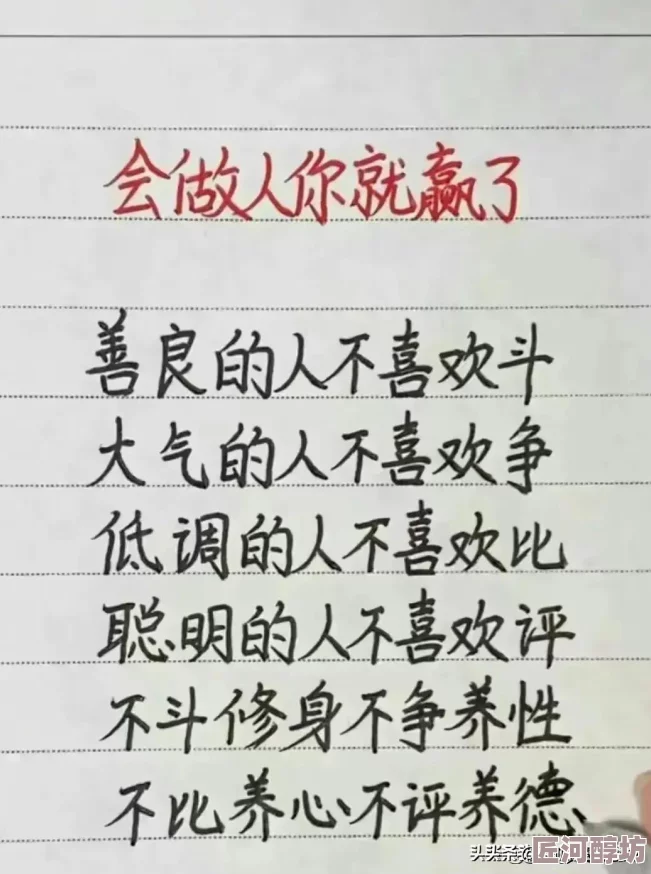 会做人你就赢了
善良的人不喜欢斗
大气的人不喜欢争
低调的人不喜欢比
聪明的人不喜欢评
不斗修身不争养性
不比养心不评养德
头条
匠河醇坊